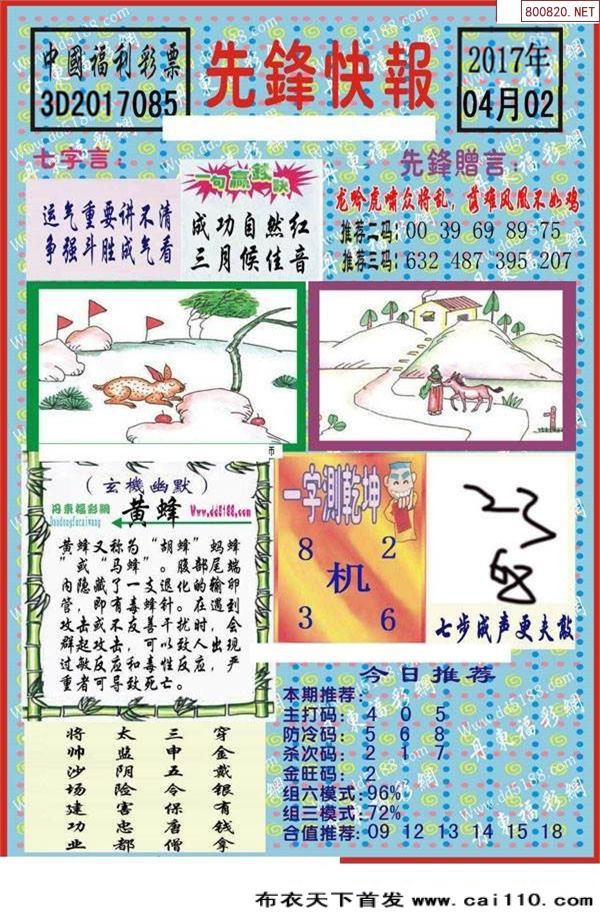 800820.NET
中國福利彩票
3D2017085
先鋒快報
2017年
04月02
七字言：
运气重要讲不清
争强斗胜成气看
一句赢
成功自然红
三月候佳音
先鋒贈言：
龙吟虎啸众将乱，落难凤凰不如鸡
推荐二码：00 39 69 89 75
推荐三码：632 487 395 207
（玄機幽默）
丹東福彩網
Dandongfucaiwang
黄蜂
Www.dd5188.com
黄蜂又称为“胡蜂”蚂蜂
”或“马蜂”。腹部尾端
内隐藏了一支退化的输卵
管，即有毒蜂针。在遇到
攻击或不友善干扰时，会
群起攻击，可以致人出现
过敏反应和毒性反应，严
重者可导致死亡。
一字測乾坤
8 2
机
3 6
七步成声更夫敲
将帅沙场建功业
太监阴险害忠都
三申五令保唐僧
穿金戴银有钱拿
今日推荐
本期推荐：
主打码：4 0 5
防冷码：5 6 8
杀次码：2 1 7
金旺码：2
组六模式：96%
组三模式：72%
合值推荐：09 12 13 14 15 18
布衣天下首发 www.cai110.com